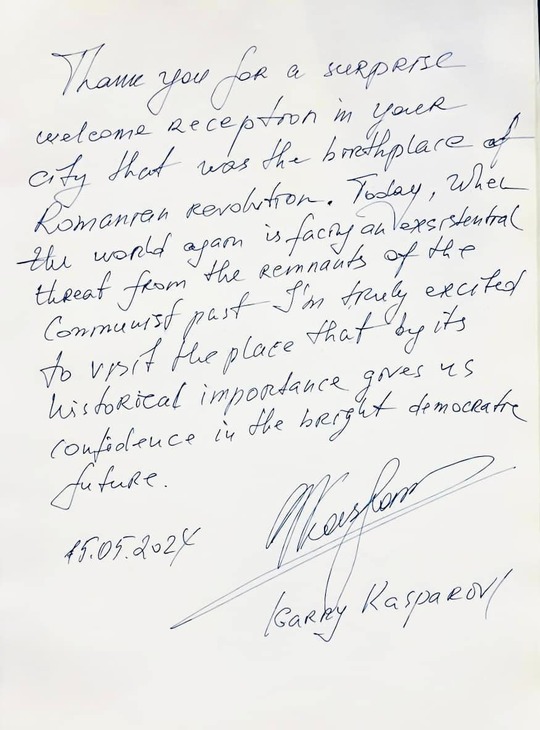 Thank you for a surprise
welcome reception in your
city that was the birthplace of
Romanian revolution. Today, when
the world again is facing an exsistential
threat from the remnants of the
Communist past I'm truly excited
to visit the place that by its
historical importance gives us
confidence in the bright democratic
future.
15.05.2024
Kasparov
Garry Kasparov